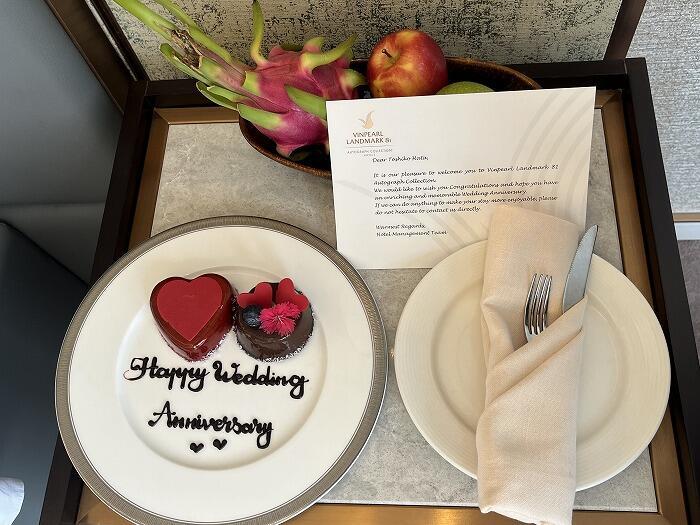 VINPEARL
LANDMARK 81
AUTOGRAPH COLLECTION
HOTELS
Dear Toshiko Hata,
It is our pleasure to welcome you to Vinpearl Landmark 81
Autograph Collection.
We would like to wish you Congratulations and hope you have
an enriching and memorable Wedding Anniversary.
If we can do anything to make your stay more enjoyable, please
do not hesitate to contact us directly.
Warmest Regards,
Hotel Management Team
Happy Wedding
Anniversary